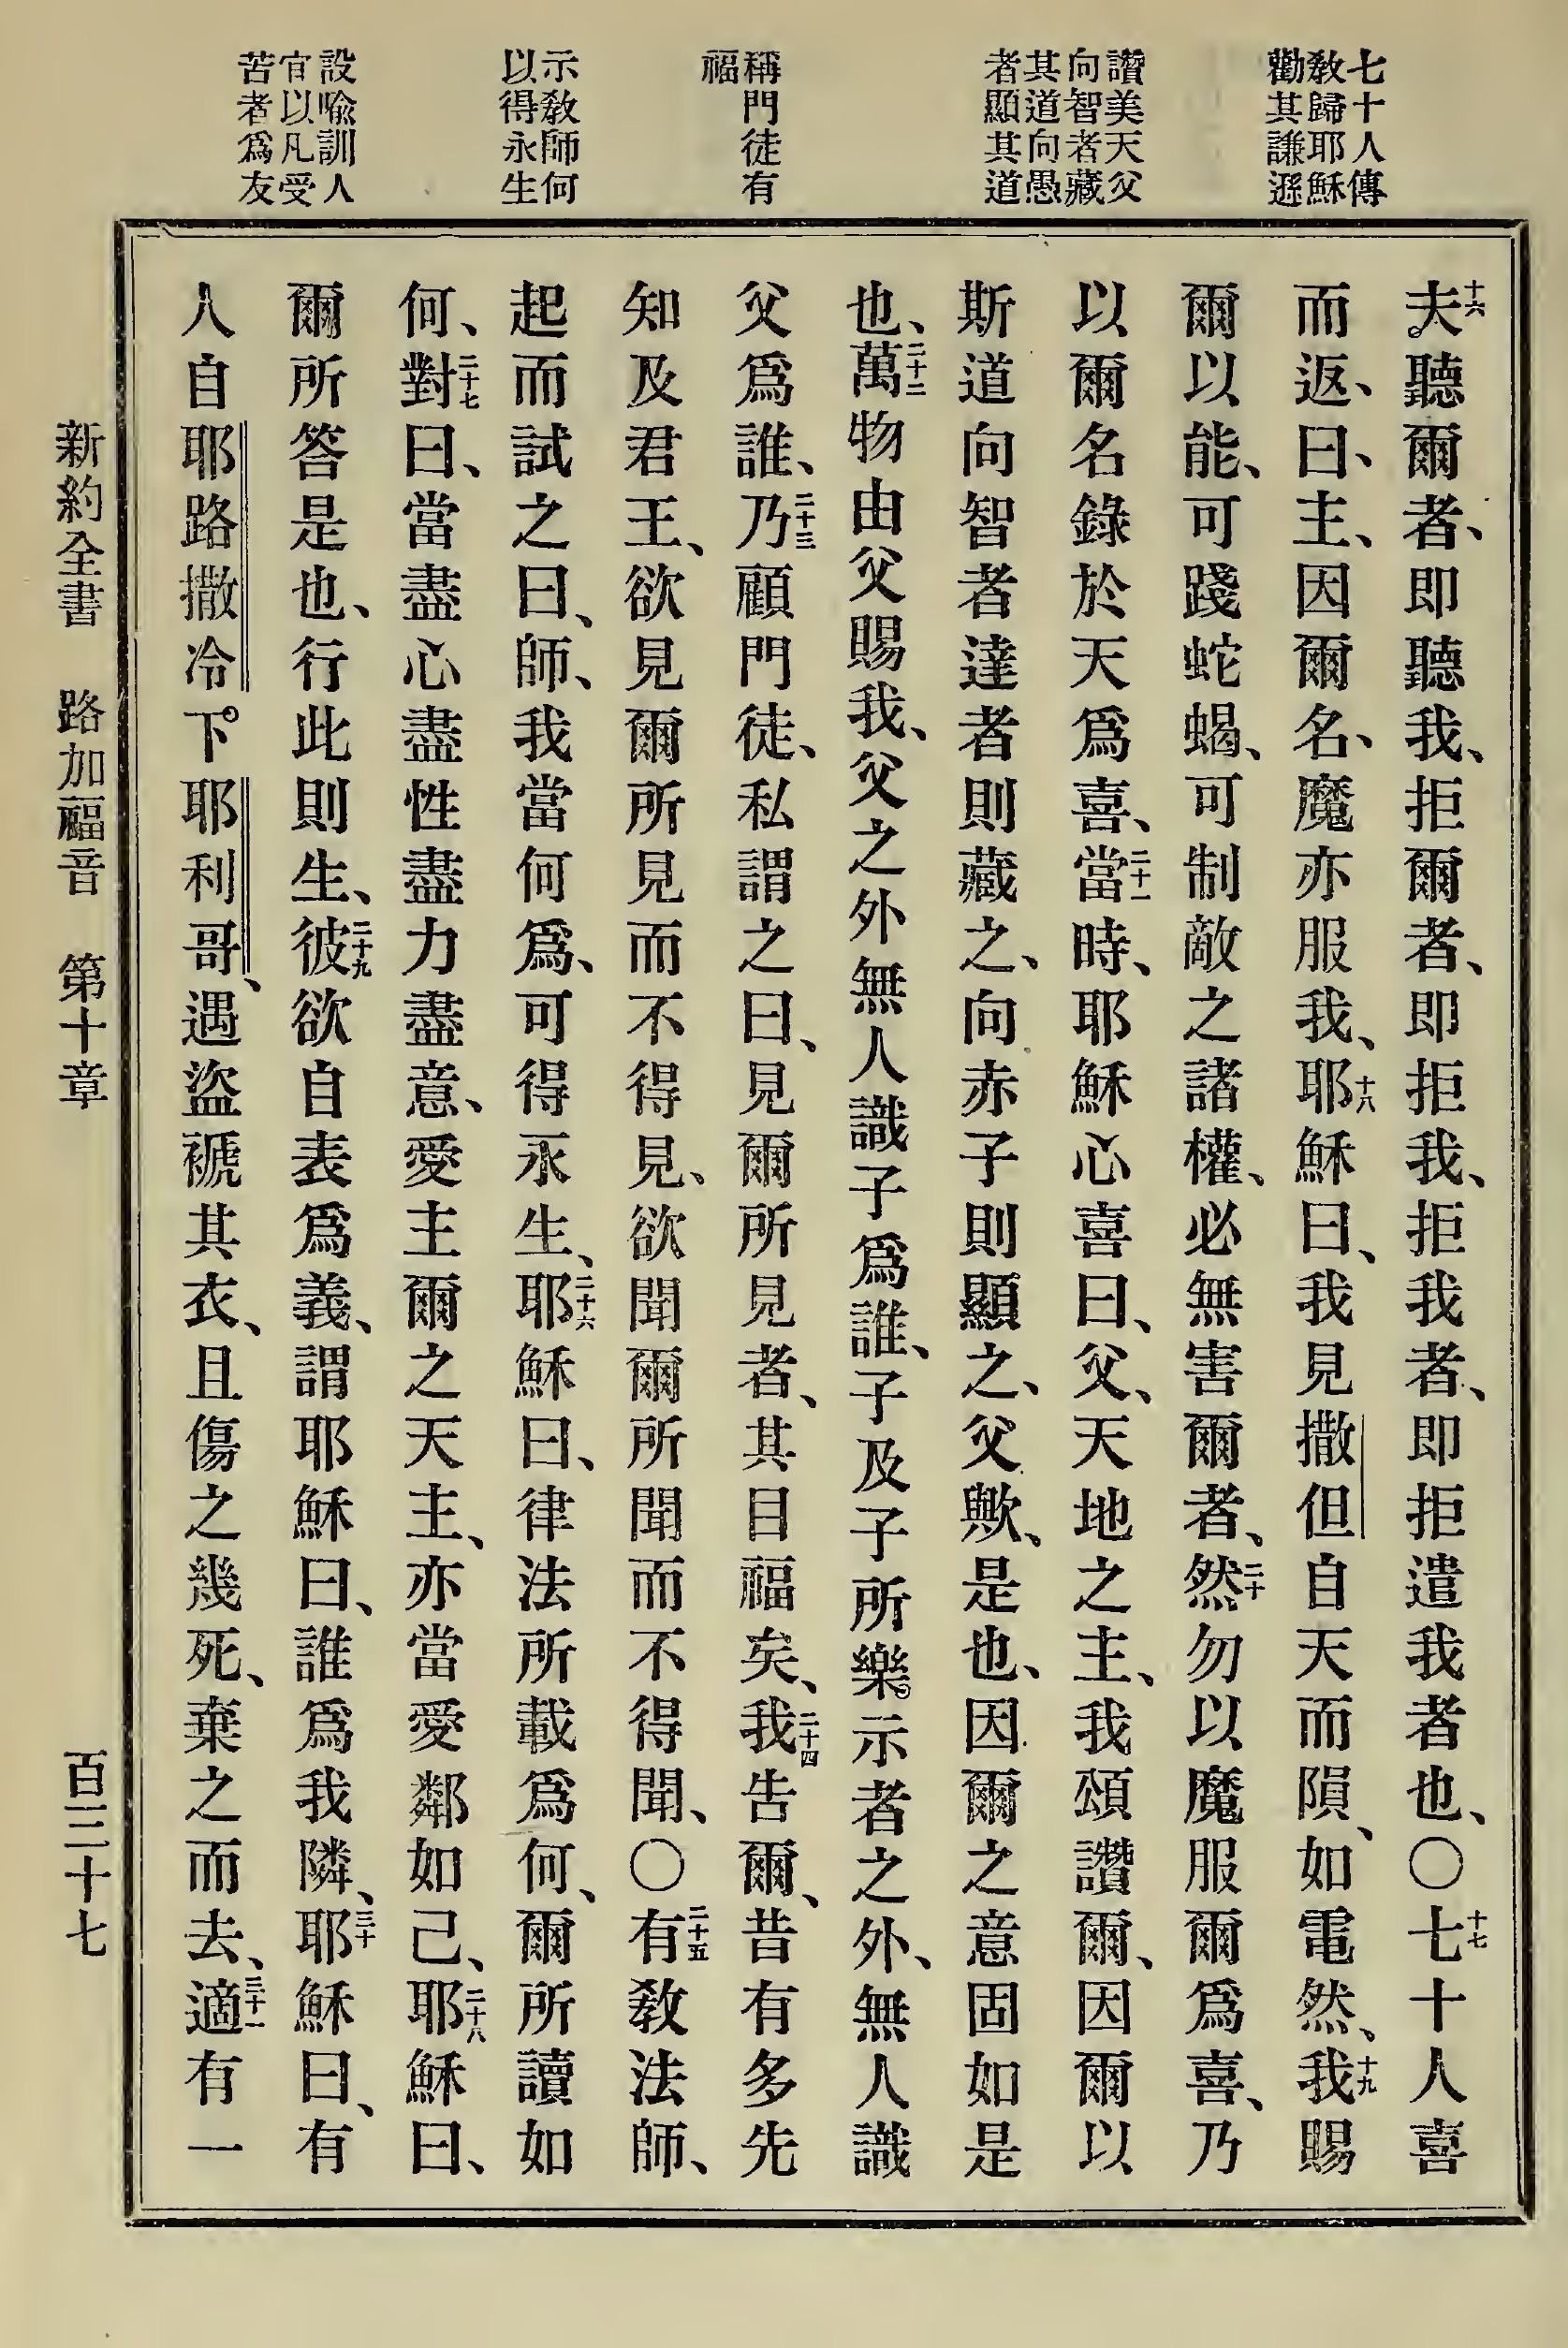 七十人傳
教歸耶穌
勸其謙遜
讚美天父
向智者藏
其道向愚
者顯其道
稱門徒有
福
示教師何
以得永生
設喩訓人
宜以凡受
苦者爲友
十六夫聽爾者、即聽我、拒爾者、即拒我、拒我者、即拒遣我者也、○十七七十人喜
而返、曰、主、因爾名、魔亦服我、十八耶穌曰、我見撒但自天而隕、如電然、十九我賜
爾以能、可踐蛇蝎、可制敵之諸權、必無害爾者、二十然勿以魔服爾爲喜、乃
以爾名錄於天爲喜、二十一當時、耶穌心喜曰、父、天地之主、我頌讚爾、因爾以
斯道向智者達者則藏之、向赤子則顯之、父歟、是也、因爾之意固如是
也、二十二萬物由父賜我、父之外無人識子爲誰、子及子所樂示者之外、無人識
父爲誰、二十三乃顧門徒、私謂之曰、見爾所見者、其目福矣、二十四我告爾、昔有多先
知及君王、欲見爾所見而不得見、欲聞爾所聞而不得聞、○二十五有教法師、
起而試之曰、師、我當何爲、可得永生、二十六耶穌曰、律法所載爲何、爾所讀如
何、二十七對曰、當盡心盡性盡力盡意、愛主爾之天主、亦當愛鄰如己、二十八耶穌曰、
爾所答是也、行此則生、二十九彼欲自表爲義、謂耶穌曰、誰爲我隣、三十耶穌曰、有
人自耶路撒冷下耶利哥、遇盜褫其衣、且傷之幾死、棄之而去、三十一適有一
新約全書 路加福音 第十章 百三十七